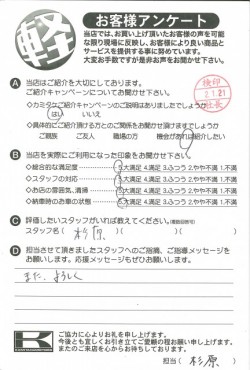 軽
お客様アンケート
当店では、お買い上げ頂いたお客様の声を可能
な限り現場に反映し、お客様により良い商品と
サービスを提供する事に努めています。
大変お手数ですが是非お声をお聞かせ下さい。
A 当店はご紹介を大切にしております。
ご紹介キャンペーンについてお聞かせ下さい。
検印
2.1.21
社長
◇カミタケご紹介キャンペーンのご説明はありましたでしょうか
はい いいえ
◇具体的にご紹介頂ける方とのご関係をお聞かせ頂けますでしょうか
ご親族 ご友人 職場の方 機会があれば紹介したい
B 当店を実際にご利用になった印象をお聞かせ下さい。
◇総合的な満足度 5大満足 4.満足 3.ふつう 2.やや不満 1.不満
◇スタッフの対応 5大満足 4.満足 3.ふつう 2.やや不満 1.不満
◇お店の雰囲気、清掃 5大満足 4.満足 3.ふつう 2.やや不満 1.不満
◇納車時のお車の状態 5大満足 4.満足 3.ふつう 2.やや不満 1.不満
C 評価したいスタッフがいれば教えてください。(複数回答可)
スタッフ名( 杉原 )( )( )
D 担当させて頂きましたスタッフへのご指摘、ご指導メッセージを
お願いします。応援メッセージもぜひお願いします。
また、よろしく
K
ご協力に心よりお礼を申し上げます。
今後とも宜しくお引き立てご愛顧の程お願い申し上げます。
またのご来店を心からお待ちしております。
担当( 杉原 )